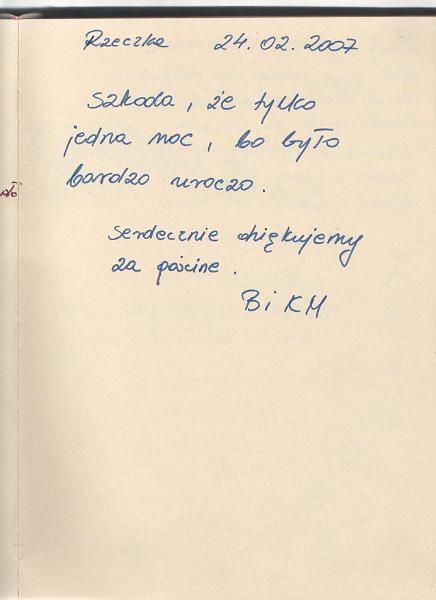 Rzeczka 24.02.2007
Szkoda, że tylko
jedna noc, bo było
bardzo uroczo.
Serdecznie dziękujemy
za gościnę.
B i KM